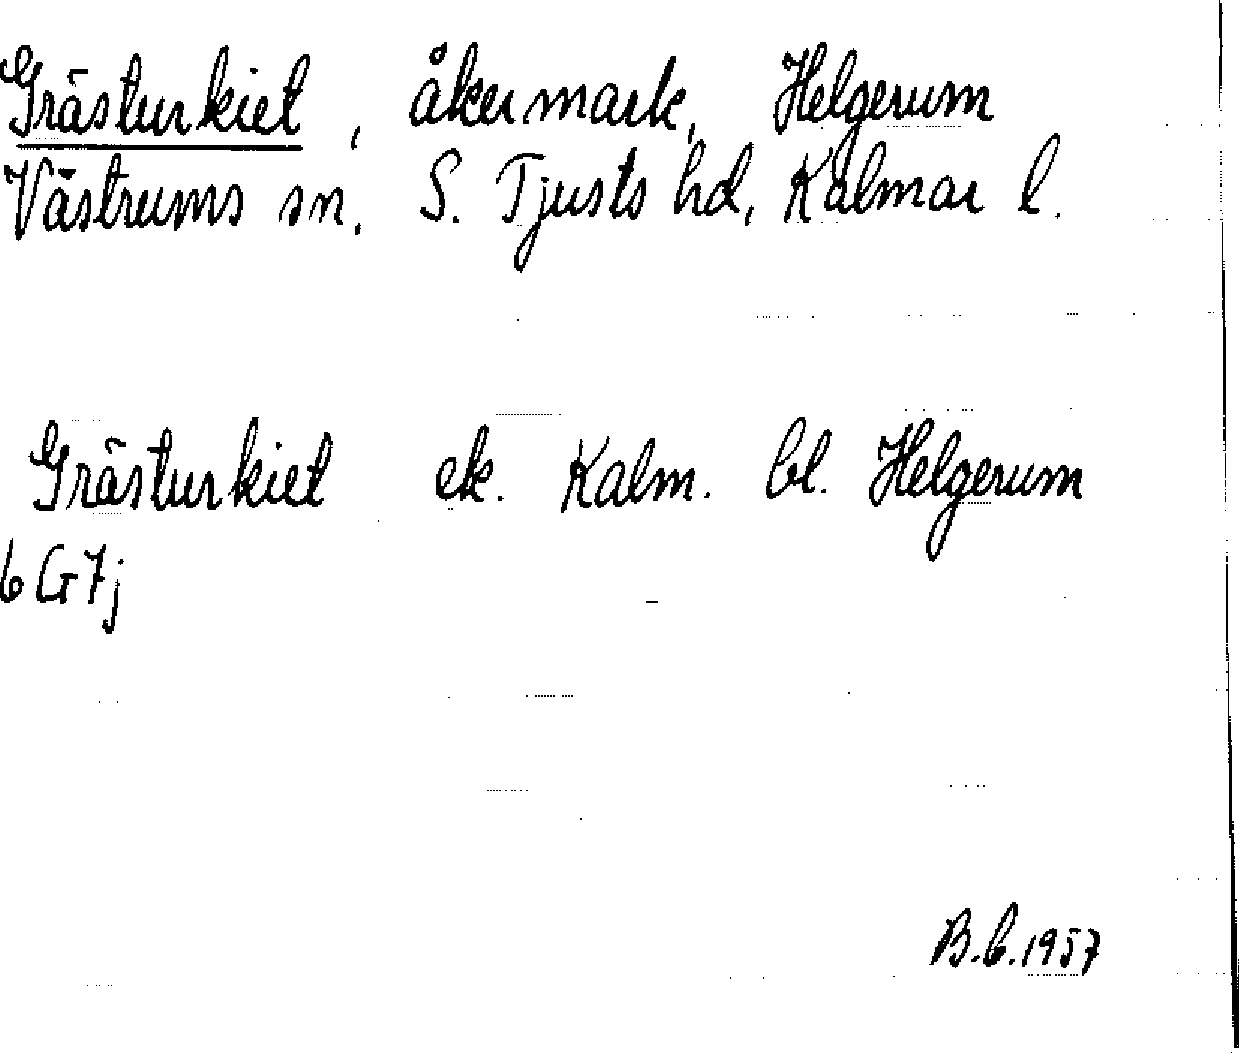 Grästurkiet, åkermark, Helgerum
Västrums sn. S. Tjusts hd, Kalmar l.
Grästurkiet ek. Kalm. bl. Helgerum
6 G7j
B.b.1957